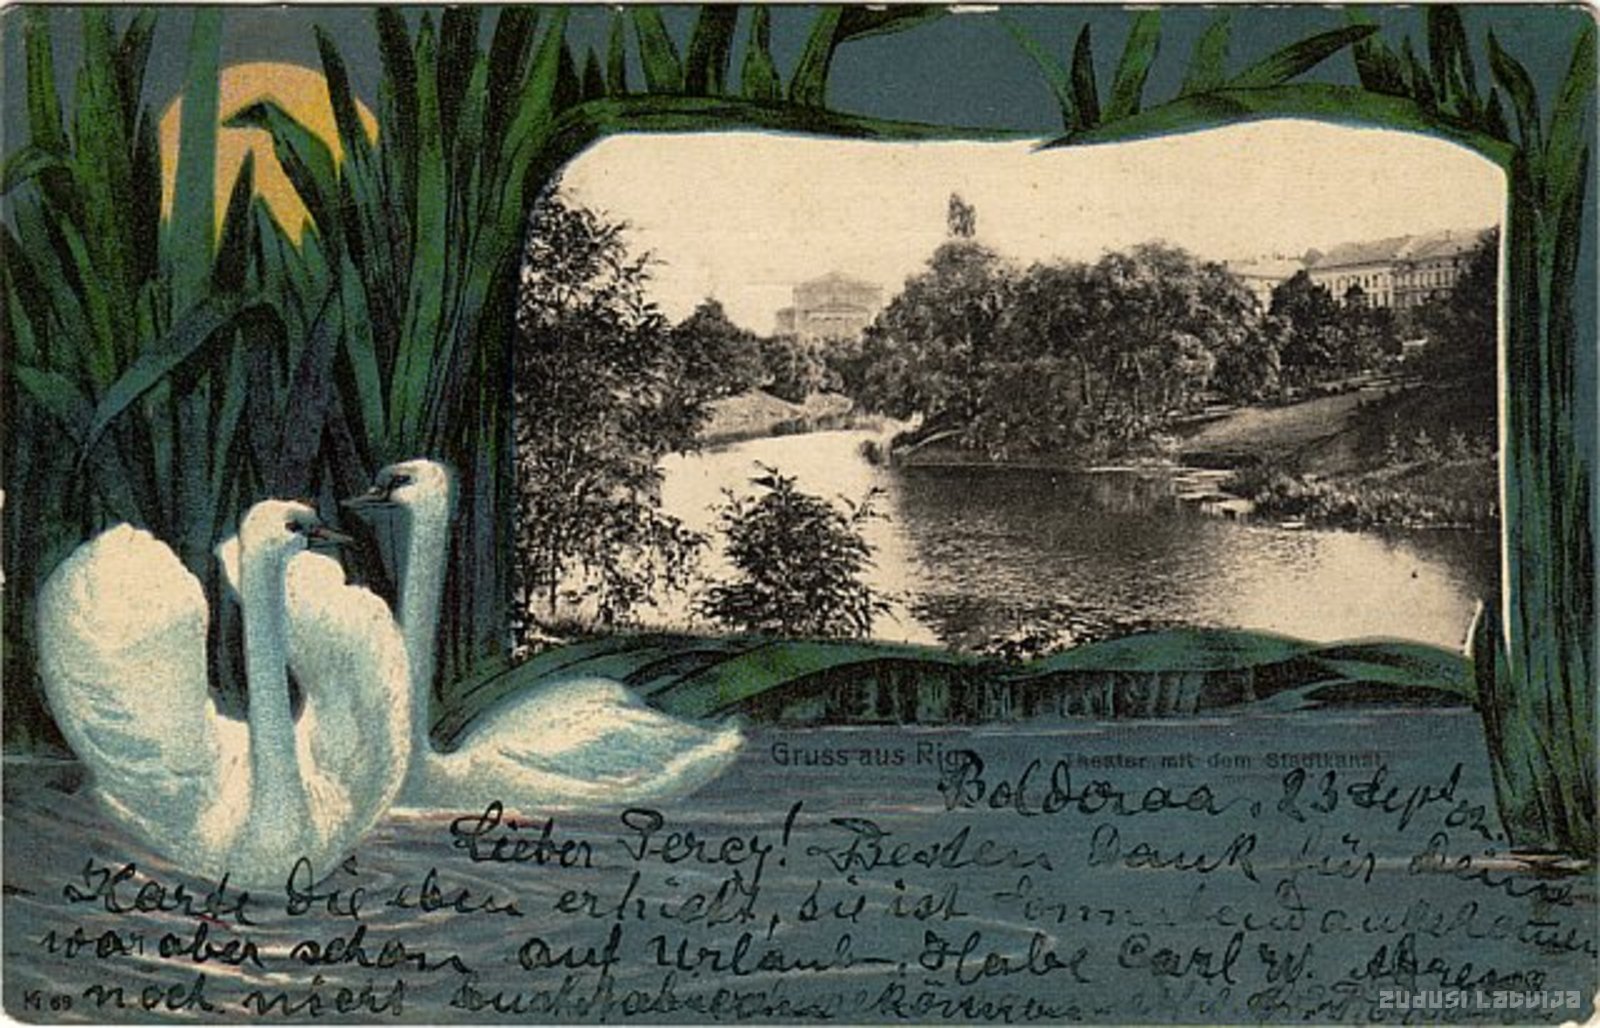 Gruss aus Riga Theater mit dem Stadtkanal.
Boldoraa, 23 Sept 02.
Lieber Percy! Besten Dank für Deine
Karte die eben erhielt, sie ist
war aber schon auf Urlaub. Habe Carl W.
noch nicht können
Ki 69
ZUDUSI LATVIJA